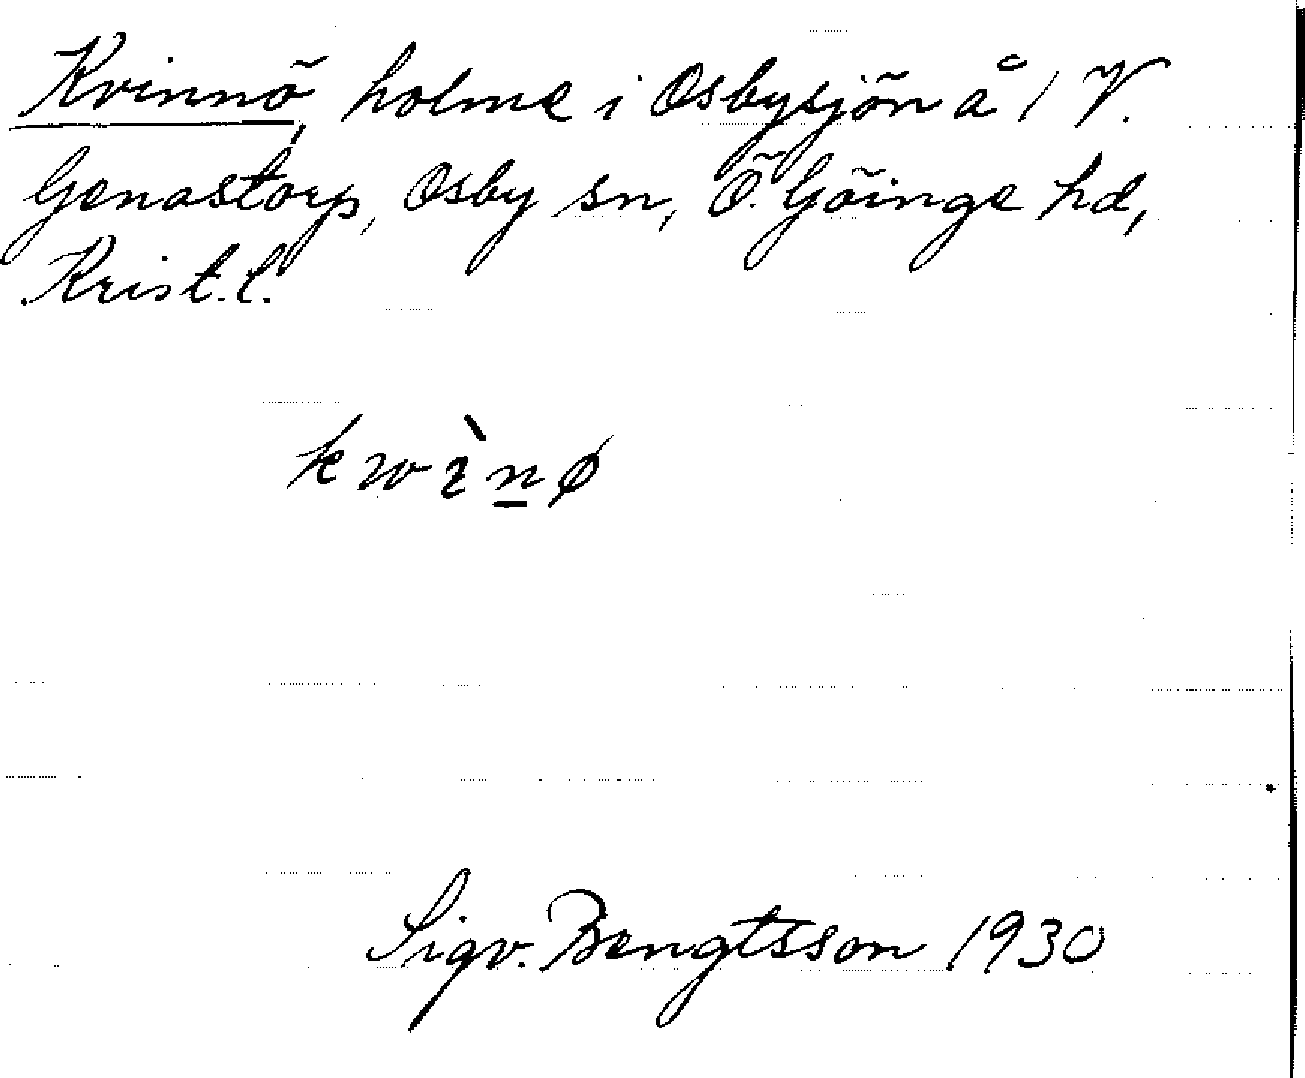 Kvinnö, holme i Osbysjön å 1 V.
Genastorp, Osby sn, Ö. Göinge hd,
Krist. l.
kwìn̲ø
Sigv. Bengtsson 1930